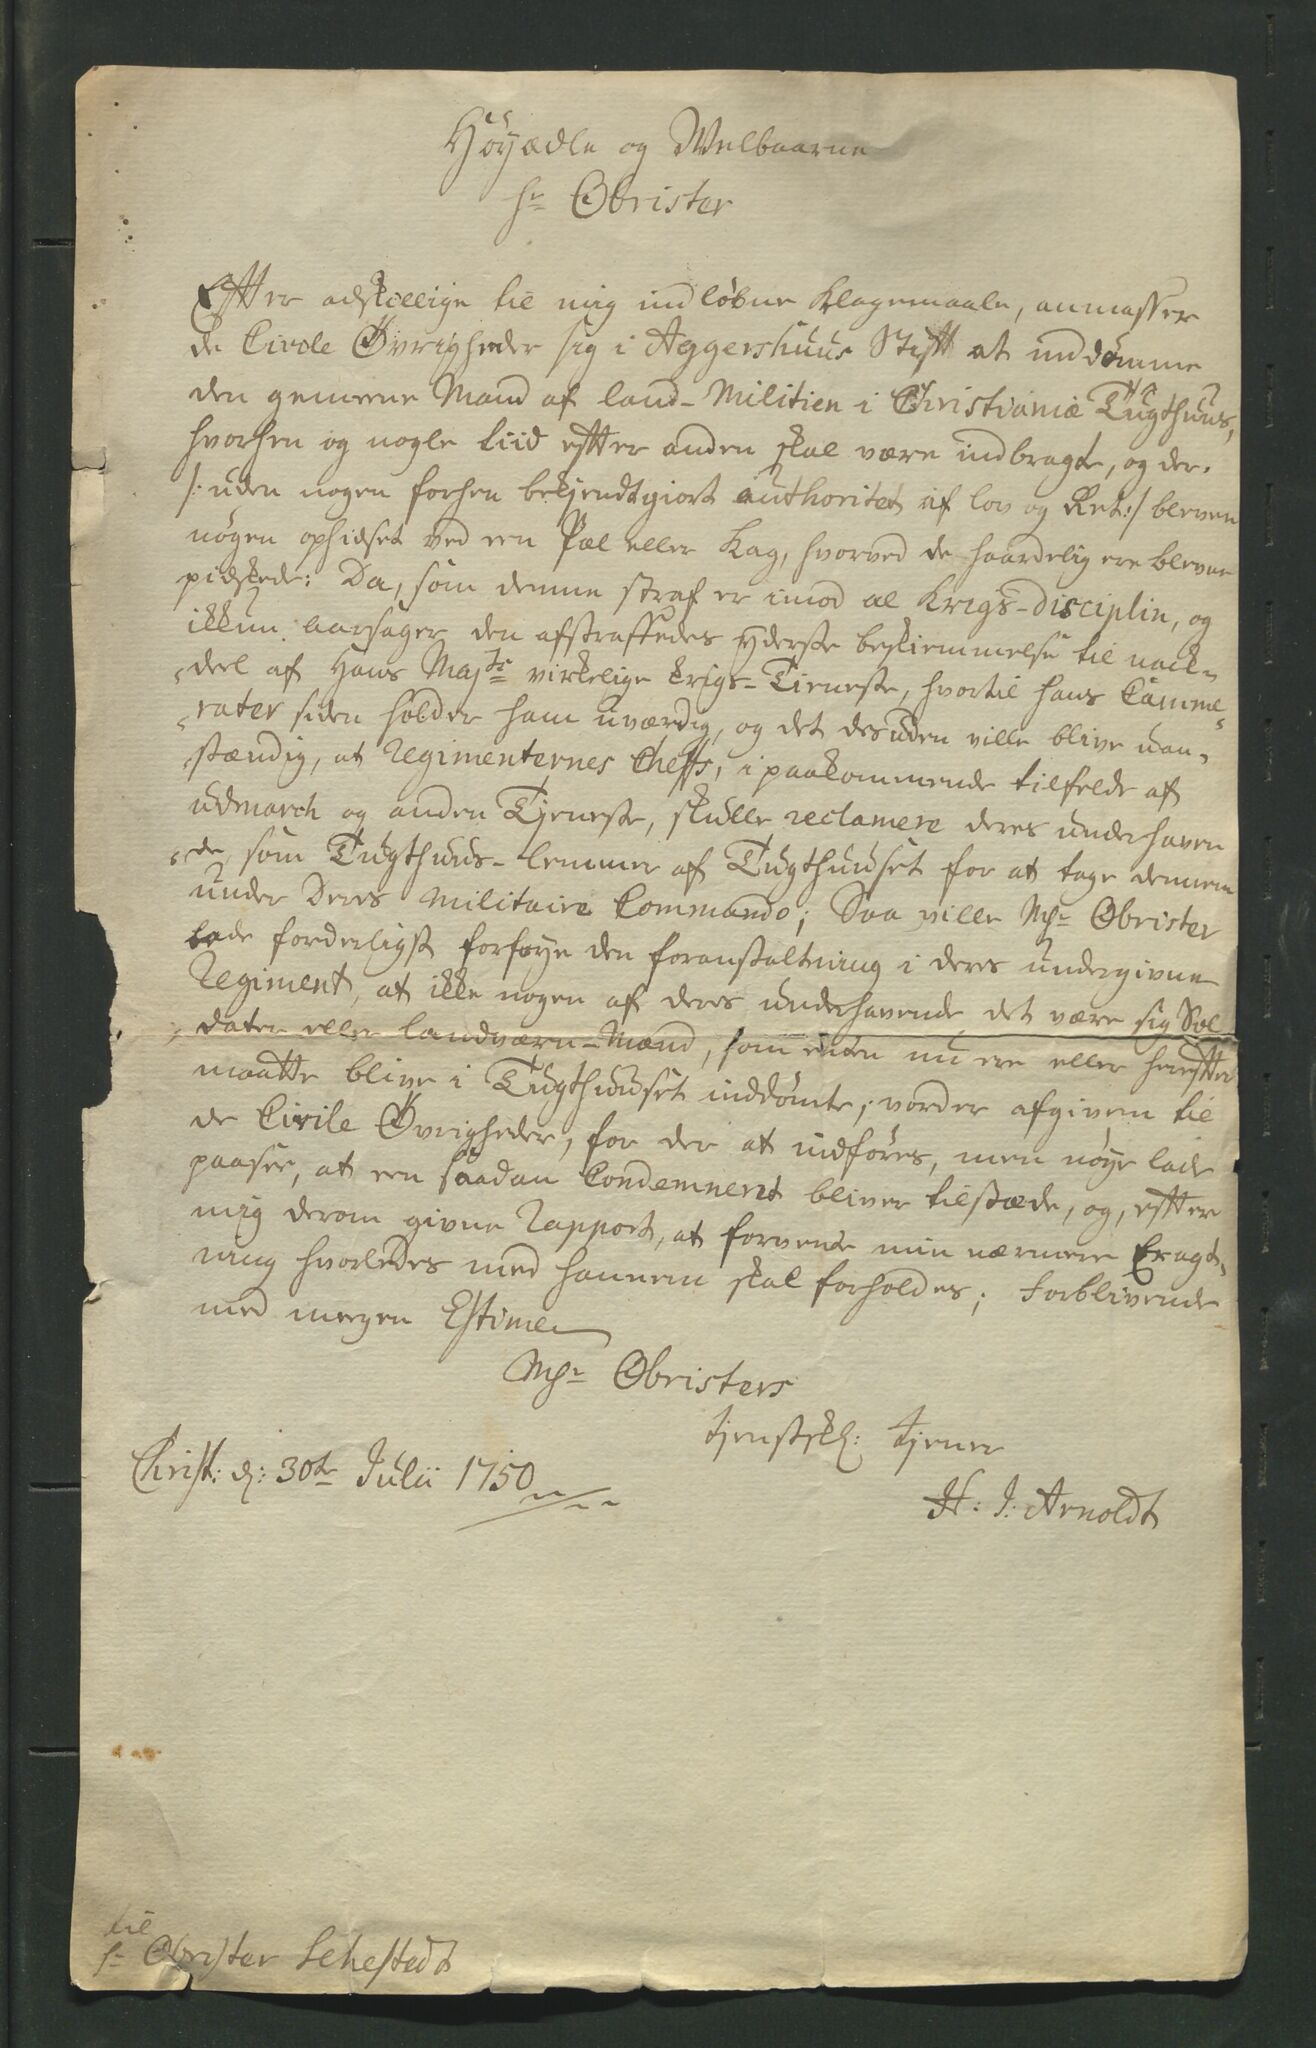 Höyædle og Welbaarne
Hr Obrister
Efter adskillige til mig indløbne Klagemaale, anmasser
de Civile Øvrigheder sig i Aggershuus Stift at inddömme
den gemeene Mand af land-Militien i Christianiæ Tugthuus,
hvorhen og nogle tiid efter anden skal være indbragte, og der
/: uden nogen forhen bekjendtgiort authoritet af lov og Ret :/ bleven
nögen ophidset ved een Pæl eller Kag, hvorved de haardelig ere blevne
pidskede: Da, som denne straf er imod al Krigs-disciplin, og
ikkun aarsager den afstraffedes yderste beskiemmelse til nack-
deel af Hans Majts virkelige Krigs-Tieneste, hvortil hans Camme-
rater siden holder ham uværdig, og det desuden ville blive uan-
stændig, at Regimenternes Cheffs, i paakommende tilfelde af
udmarch og anden Tjeneste, skulle reclamere deres underhaven
de, som Tugthuus-lemmer af Tugthuuset for at tage dennem
under Deres Militaire Commando; Saa ville Mhr Obrister
lade forderligst forföye den foranstaltning i deres undergivne
Regiment, at ikke nogen af deres underhavende, det være sig Sol
dater eller landværn-Mænd, som enten nu ere eller herefter
maatte blive i Tugthuuset inddömte, vorder afgiven til
de Civile Øvrigheder, for der at indföres, men nöye lade
paasee, at een saadan Condemneret bliver tilstæde, og, efter
mig derom givne Rapport, at forvente min nærmere Eragt-
ning hvorledes med hannem skal forholdes; Forblivende
med megen Estime
Mhr Obristers
tjenstskl: tjener
Christ: d: 30te Julii 1750
H: J: Arnoldt
til
Hr Obrister Sehestedt